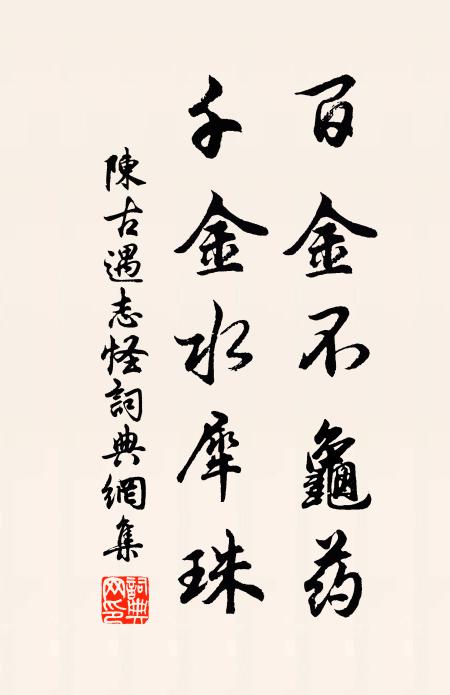 百金不龜药
千金水犀珠
陳古遇志怪詞典網集
詞典网印